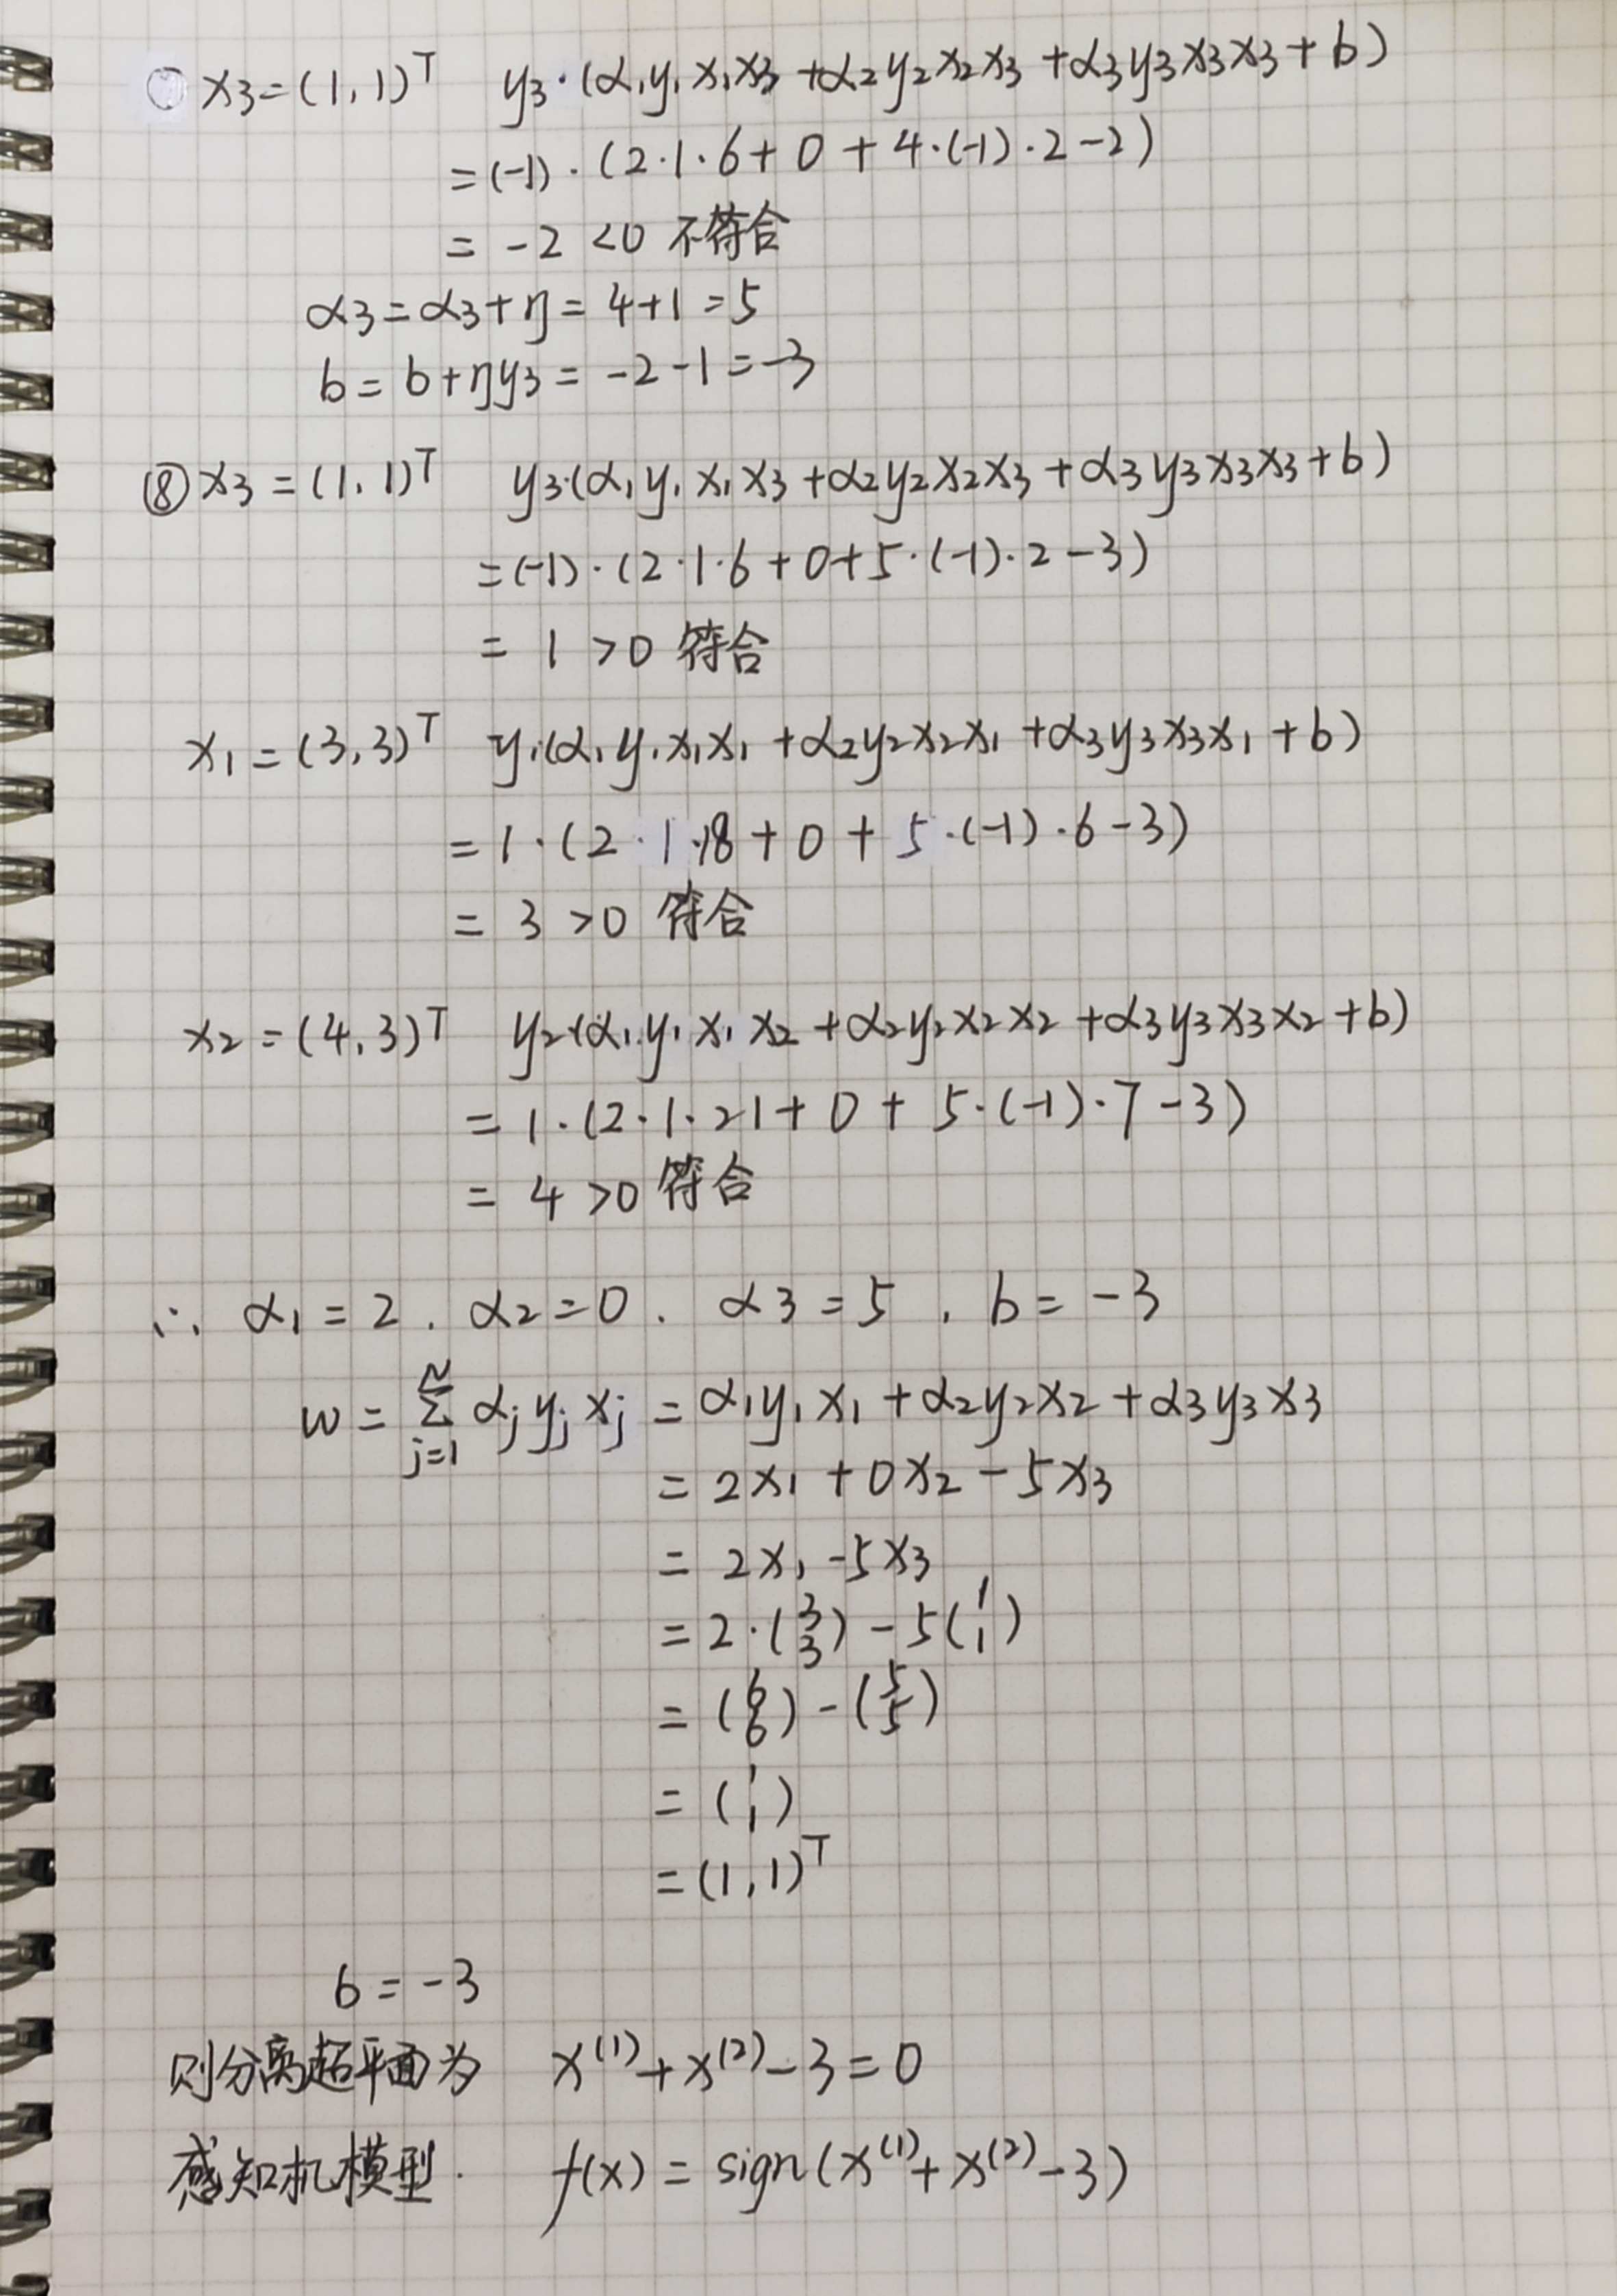 x₃=(1,1)ᵀ y₃·(α₁y₁x₁x₃+α₂y₂x₂x₃+α₃y₃x₃x₃+b)
=(-1)·(2·1·6+0+4·(-1)·2-2)
= -2 <0 不符合
α₃=α₃+η=4+1=5
b=b+ηy₃=-2-1=-3
⑧x₃=(1,1)ᵀ y₃·(α₁y₁x₁x₃+α₂y₂x₂x₃+α₃y₃x₃x₃+b)
=(-1)·(2·1·6+0+5·(-1)·2-3)
= 1 >0 符合
x₁=(3,3)ᵀ y₁·(α₁y₁x₁x₁+α₂y₂x₂x₁+α₃y₃x₃x₁+b)
=1·(2·1·18+0+5·(-1)·6-3)
= 3 >0 符合
x₂=(4,3)ᵀ y₂·(α₁y₁x₁x₂+α₂y₂x₂x₂+α₃y₃x₃x₂+b)
=1·(2·1·21+0+5·(-1)·7-3)
= 4 >0 符合
∴ α₁=2, α₂=0, α₃=5, b=-3
w=∑ⱼ₌₁ᴺ αⱼyⱼxⱼ=α₁y₁x₁+α₂y₂x₂+α₃y₃x₃
=2x₁+0x₂-5x₃
=2x₁-5x₃
=2·(3 3)-5(1 1)
=(6 6)-(5 5)
=(1 1)
=(1,1)ᵀ
b=-3
则分离超平面为 x⁽¹⁾+x⁽²⁾-3=0
感知机模型. f(x)=sign(x⁽¹⁾+x⁽²⁾-3)